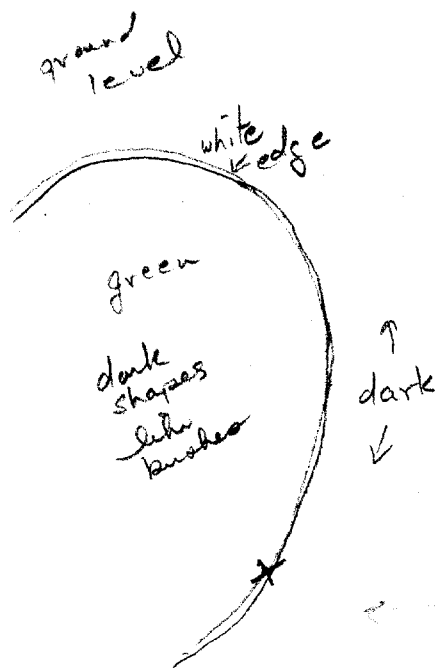 ground
level
white
edge
green
dark
shapes
like
bushes
dark